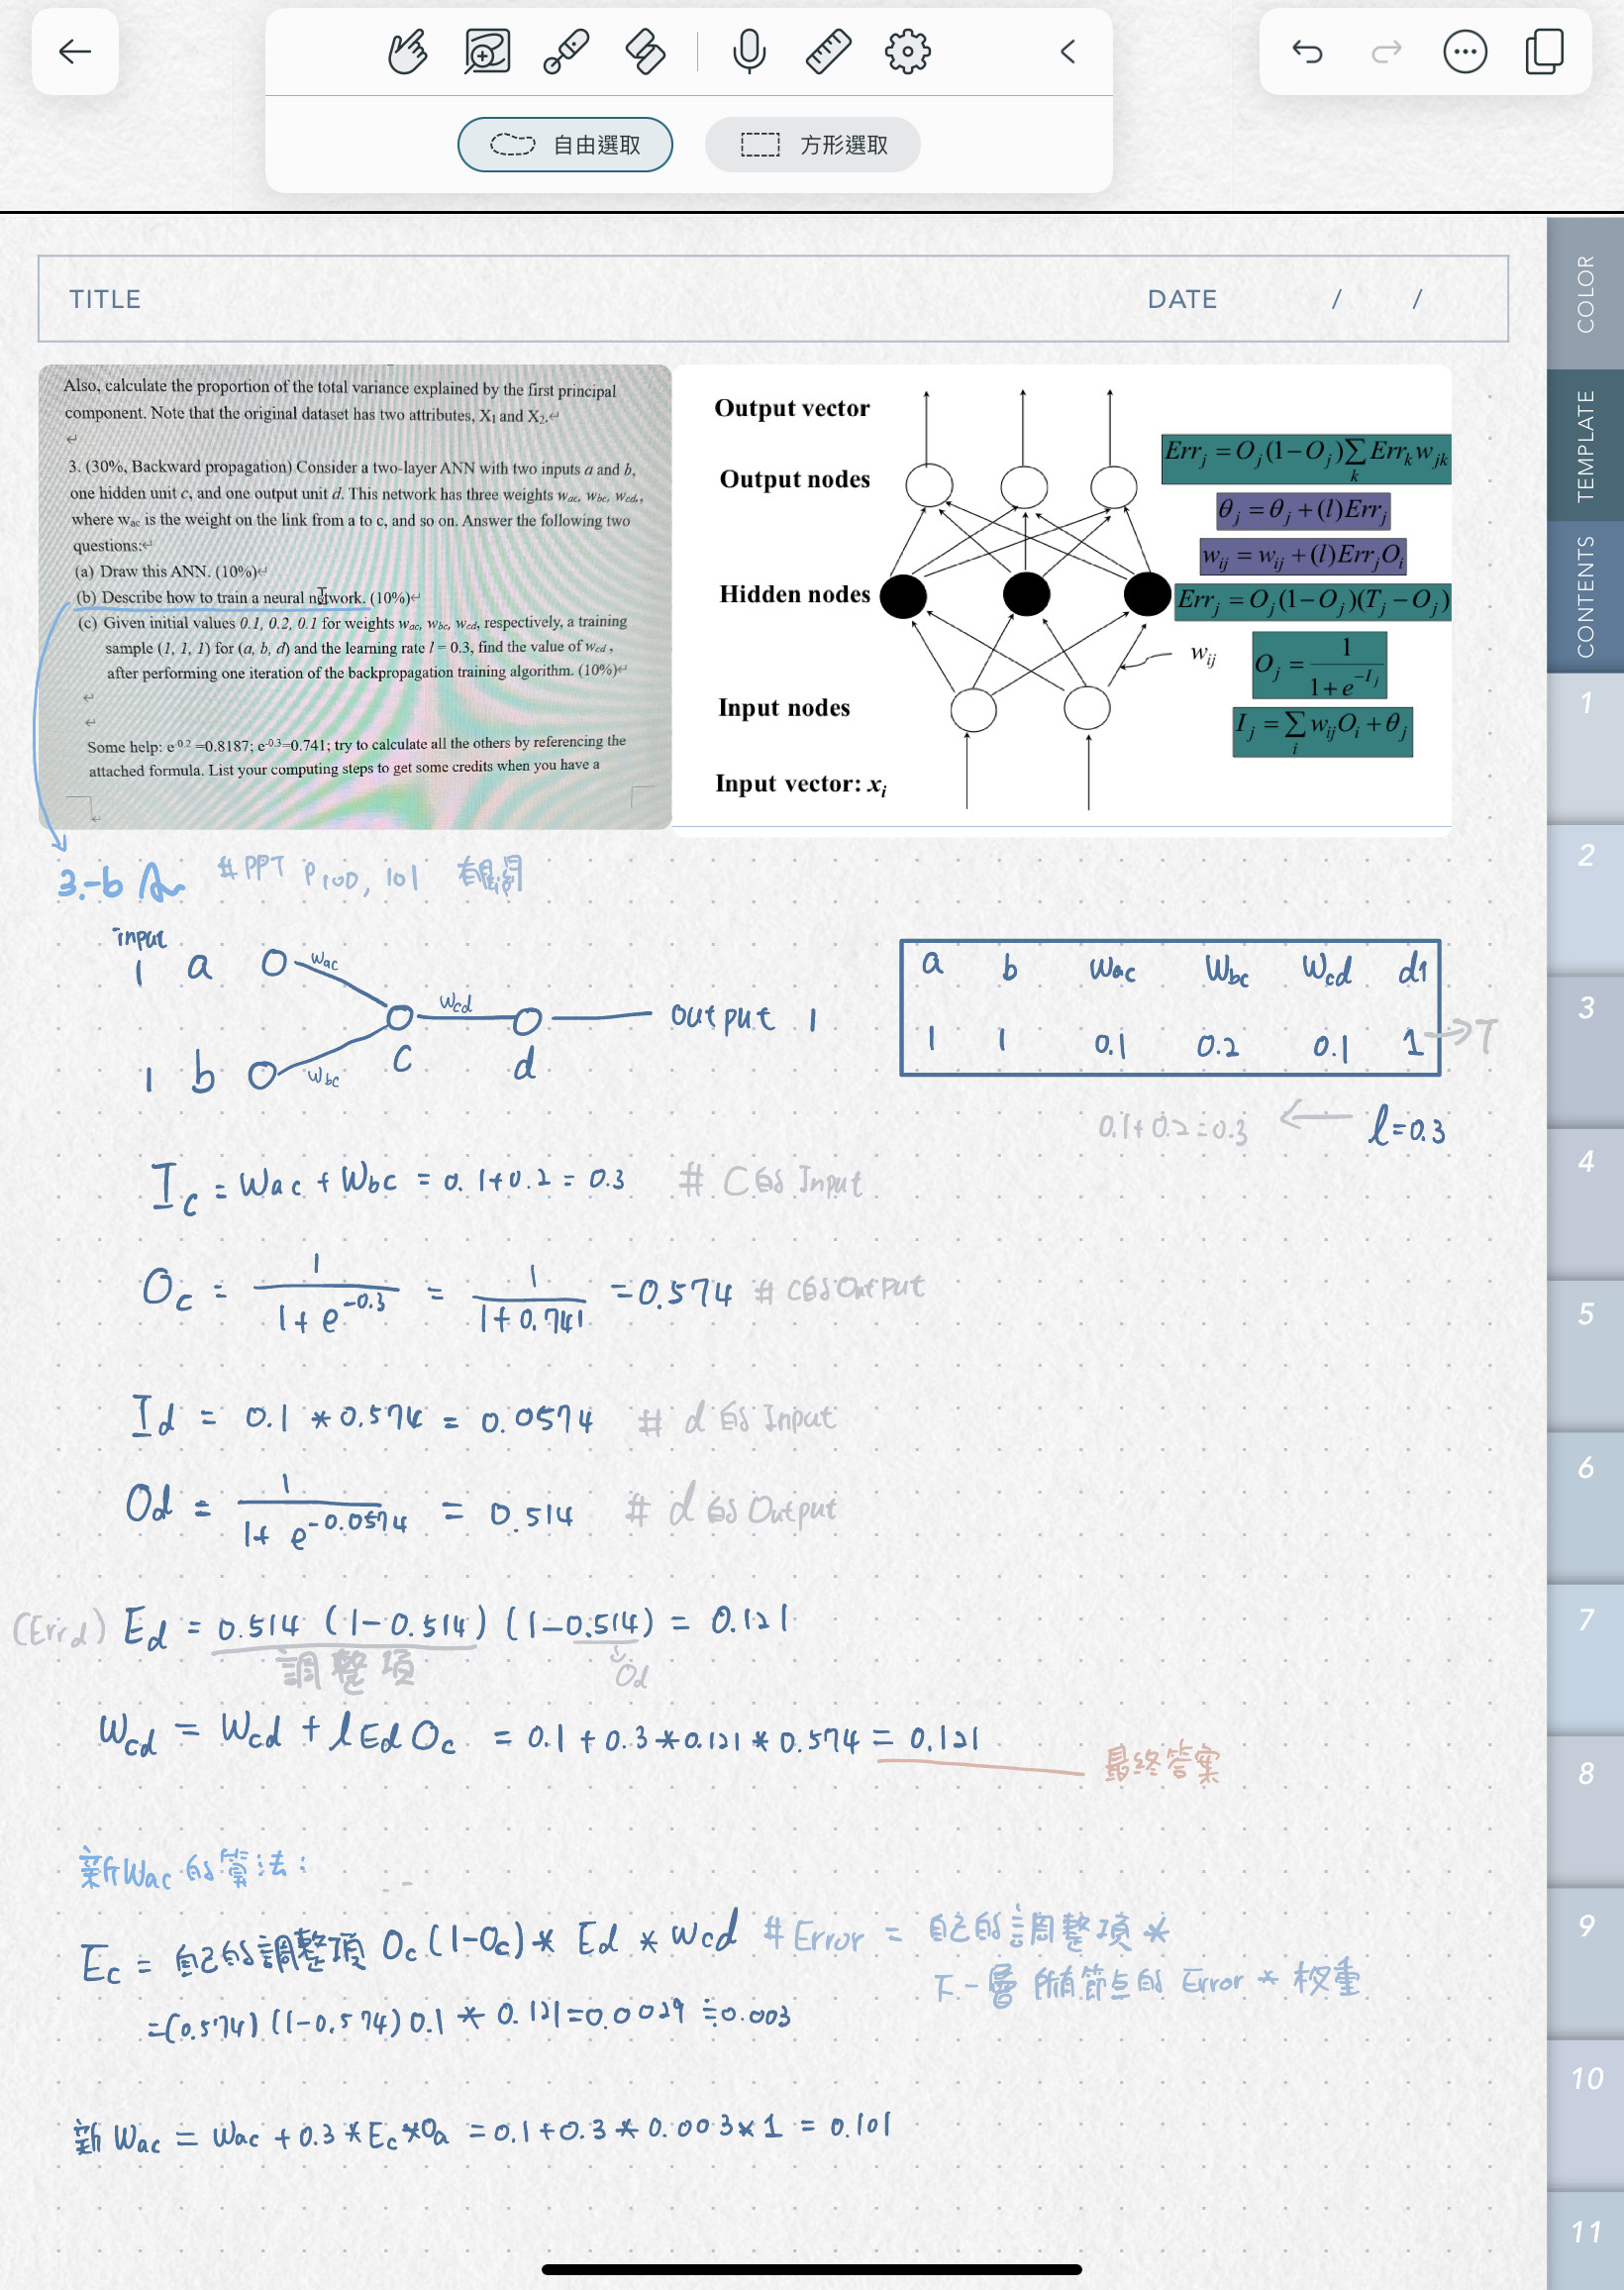 自由選取 方形選取
TITLE DATE / /
COLOR
TEMPLATE
CONTENTS
1
2
3
4
5
6
7
8
9
10
11
Also, calculate the proportion of the total variance explained by the first principal
component. Note that the original dataset has two attributes, X₁ and X₂.↵
↵
3. (30%, Backward propagation) Consider a two-layer ANN with two inputs a and b,
one hidden unit c, and one output unit d. This network has three weights wac, wbc, wcd,,
where wac is the weight on the link from a to c, and so on. Answer the following two
questions:↵
(a) Draw this ANN. (10%)↵
(b) Describe how to train a neural network. (10%)↵
(c) Given initial values 0.1, 0.2, 0.1 for weights wac, wbc, wcd, respectively, a training
sample (1, 1, 1) for (a, b, d) and the learning rate l = 0.3, find the value of wcd ,
after performing one iteration of the backpropagation training algorithm. (10%)↵
↵
↵
Some help: e⁻⁰·² =0.8187; e⁻⁰·³=0.741; try to calculate all the others by referencing the
attached formula. List your computing steps to get some credits when you have a
↵
Output vector
Output nodes
Hidden nodes
Input nodes
Input vector: xi
wij
Errj = Oj(1−Oj)∑k Errk wjk
θj = θj + (l)Errj
wij = wij + (l)Errj Oi
Errj = Oj(1−Oj)(Tj−Oj)
Oj = 1/(1+e^−Ij)
Ij = ∑i wij Oi + θj
3.-b Ans #PPT P100, 101 有關
input
1 a wac
wcd output 1
c d
1 b wbc
a b Wac Wbc Wcd d1
1 1 0.1 0.2 0.1 1 → T
0.1+0.2=0.3 ← l=0.3
Ic = Wac + Wbc = 0.1+0.2 = 0.3 # C的Input
Oc = 1/(1+e^−0.3) = 1/(1+0.741) = 0.574 # C的Output
Id = 0.1 * 0.574 = 0.0574 # d的Input
Od = 1/(1+e^−0.0574) = 0.514 # d的Output
(Errd) Ed = 0.514 (1−0.514) (1−0.514) = 0.121
調整項 Od
Wcd = Wcd + l Ed Oc = 0.1 + 0.3 * 0.121 * 0.574 = 0.121
最終答案
新Wac的算法:
Ec = 自己的調整項 Oc (1−Oc) * Ed * Wcd #Error = 自己的調整項 *
下一層所有節点的 Error * 权重
=(0.574) (1−0.574) 0.1 * 0.121=0.0029 ≒0.003
新 Wac = Wac + 0.3 * Ec * Oa = 0.1+0.3 * 0.003 × 1 = 0.101